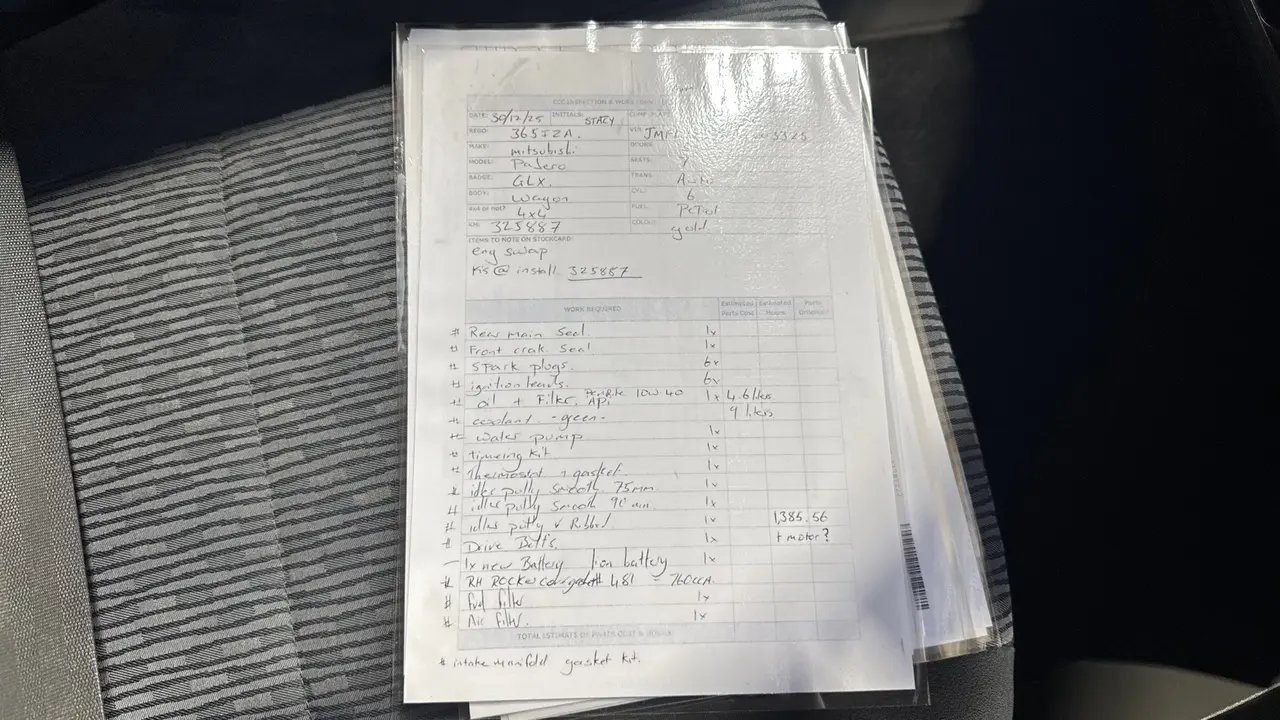 DATE: 30/12/25 INITIALS: STACY
REGO: 365IZA.
VIN: JMF 5325
MAKE: mitsubishi
MODEL: PaJero
SEATS: 7
BADGE: GLX.
TRANS: Auto
BODY: Wagon
CYL: 6
4x4
FUEL: Petrol
KM: 325887
COLOUR: gold
ITEMS TO NOTE ON STOCKCARD:
eng swap
K's @ install 325887
WORK REQUIRED Estimated Parts Cost Estimated Hours Parts Ordered
# Rear main Seal 1x
# Front crak Seal 1x
# Spark plugs. 6x
# ignition leads. 6x
# oil + Filter, 10w40 API 1x 4.6 liters
# coolant - green - 9 liters
# water pump 1x
# timeing Kit 1x
# Thermostat + gasket. 1x
# idler pully Smooth 75mm 1x
# idler pully Smooth 90mm. 1x
# idler pully v Ribbed 1x 1,385.56
# Drive Belts, 1x + motor?
— 1x new Battery battery 1x
# RH Rocker 481 = 760CCA.
# fuel filter 1x
# Air filter. 1x
TOTAL ESTIMATE OF PARTS COST & HOURS
# intake manifold gasket kit.